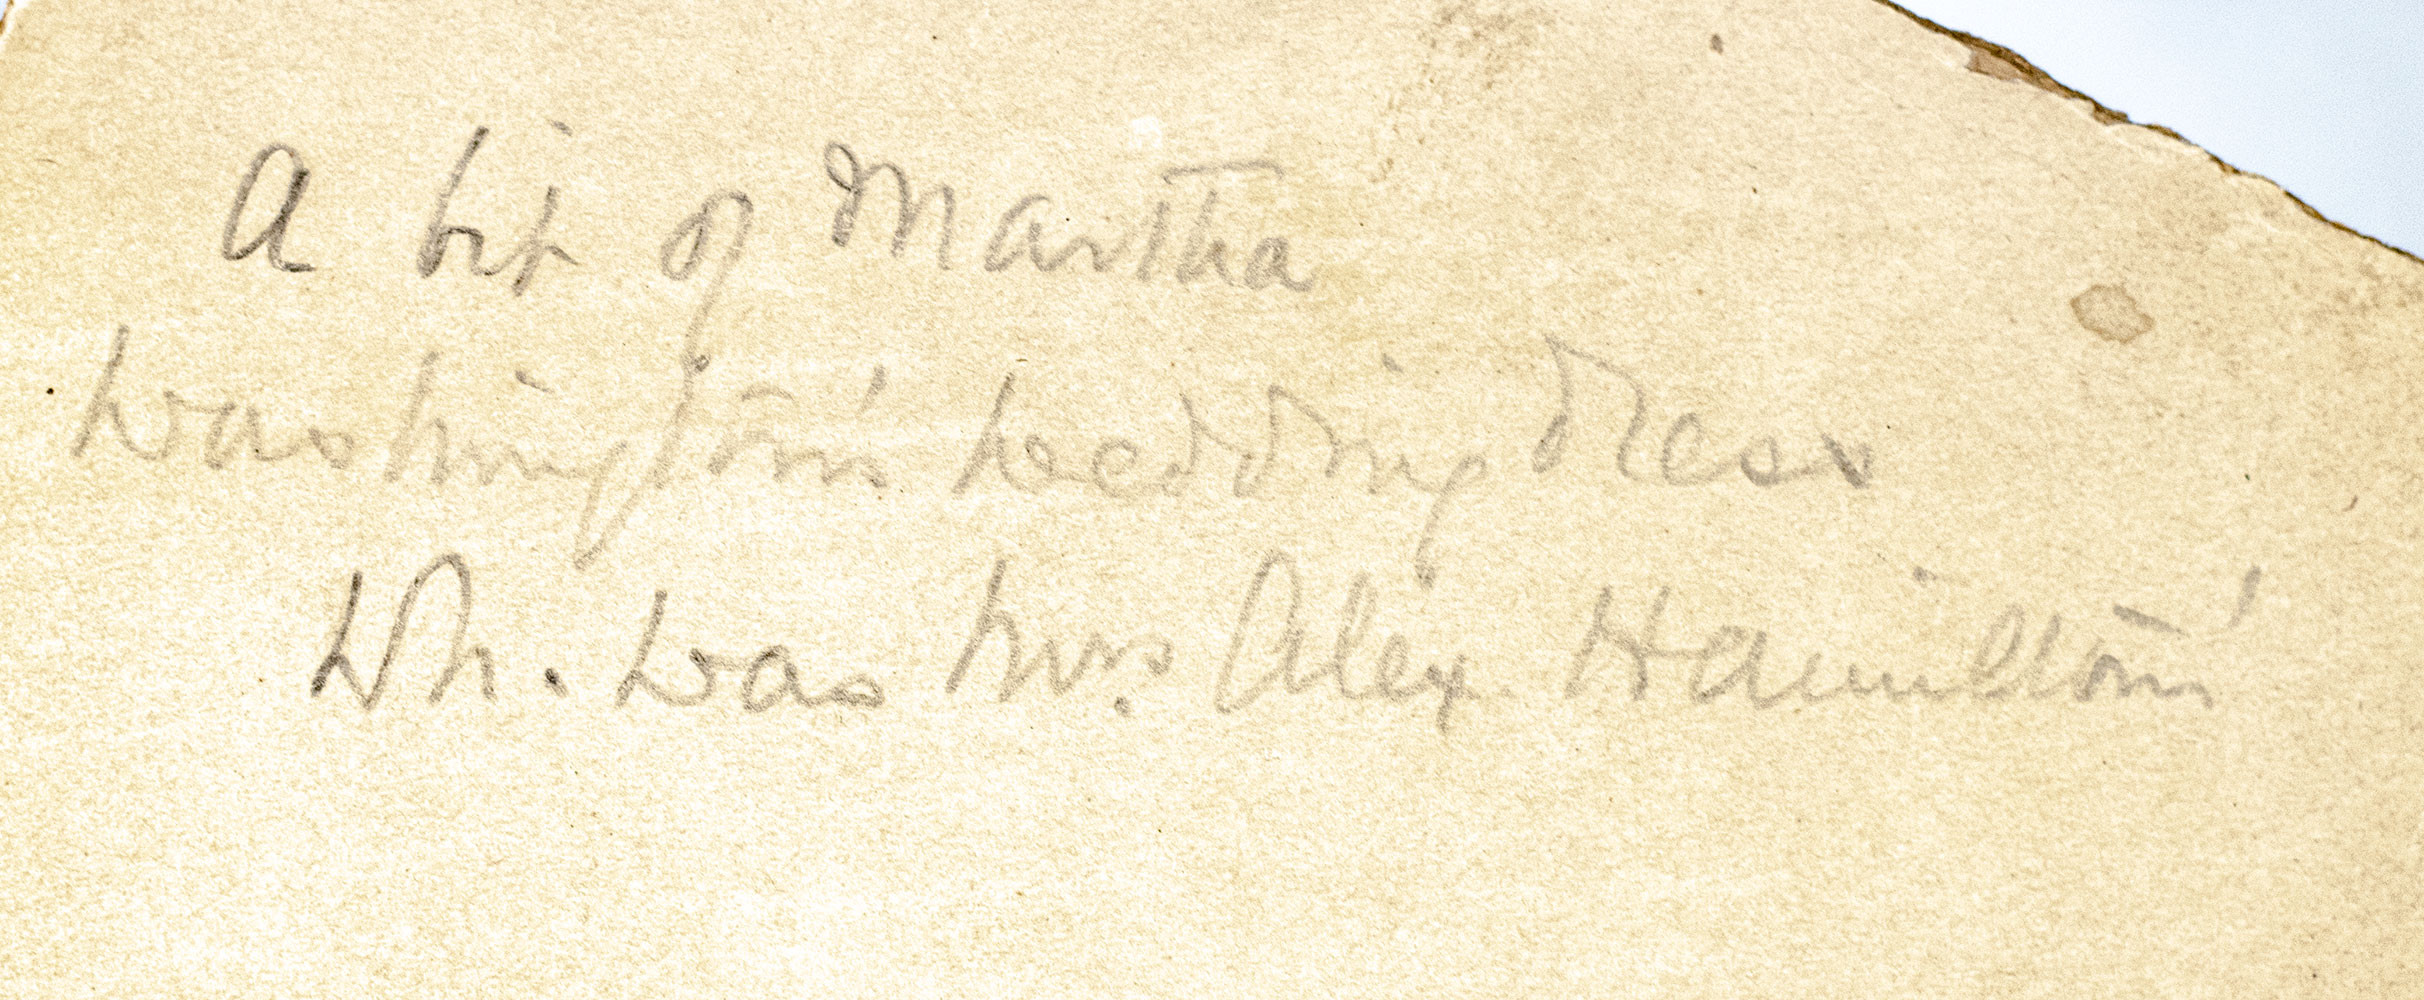 A bit of Martha
Washington's wedding dress
Wh. was Mrs. Alex Hamilton's